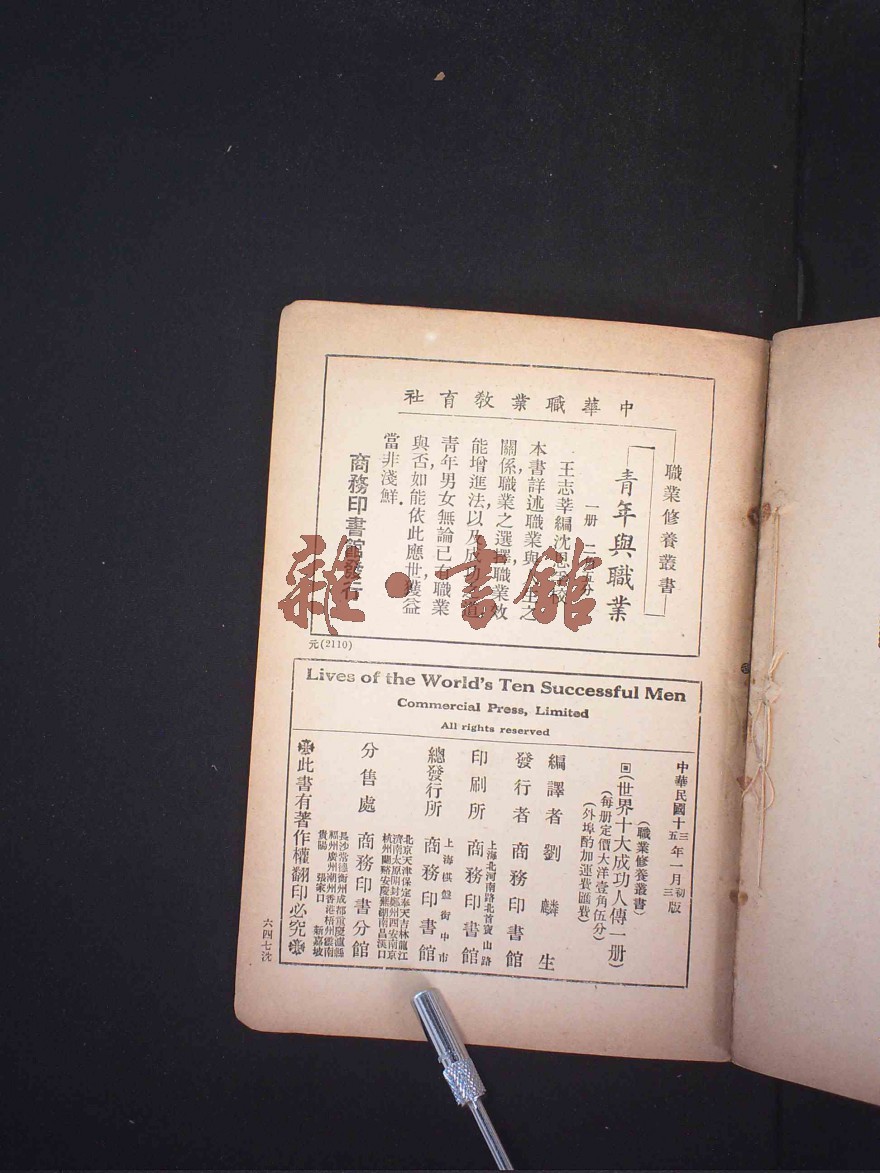 中華職業教育社
職業修養叢書
青年與職業
一册 二角五分
王志莘編沈恩孚校
本書詳述職業與人生之
關係，職業之選擇，職業效
能增進法，以及成功之道，
青年男女無論已有職業
與否，如能依此應世，獲益
當非淺鮮．
商務印書館發行
雜·書館
元(2110)
Lives of the World's Ten Successful Men
Commercial Press, Limited
All rights reserved
中華民國十三年一月初版
十五年一月三版
(職業修養叢書)
(世界十大成功人傳一册)
(每册定價大洋壹角伍分)
(外埠酌加運費匯費)
編譯者 劉麟生
發行者 商務印書館
上海北河南路北首寶山路
印刷所 商務印書館
上海棋盤街中市
總發行所 商務印書館
北京天津保定奉天吉林龍江
濟南太原開封鄭州西安南京
杭州蘭谿安慶蕪湖南昌漢口
分售處 商務印書分館
長沙常德衡州成都重慶瀘縣
福州廣州潮州香港梧州雲南
貴陽 張家口 新嘉坡
此書有著作權翻印必究
六四七沈